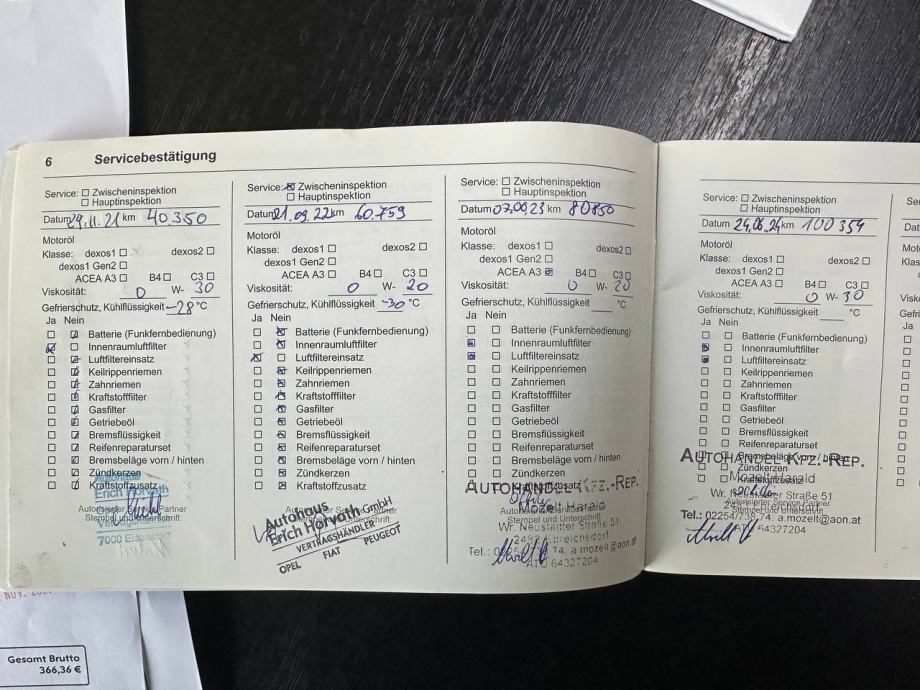 6 Servicebestätigung
Service: Zwischeninspektion
Hauptinspektion
Datum 29.11.21 km 40.350
Motoröl
Klasse: dexos1 dexos2
dexos1 Gen2
ACEA A3 B4 C3
Viskosität: 0 W- 30
Gefrierschutz, Kühlflüssigkeit -28 °C
Ja Nein
Batterie (Funkfernbedienung)
Innenraumluftfilter
Luftfiltereinsatz
Keilrippenriemen
Zahnriemen
Kraftstofffilter
Gasfilter
Getriebeöl
Bremsflüssigkeit
Reifenreparaturset
Bremsbeläge vorn / hinten
Zündkerzen
Kraftstoffzusatz
Autohaus
Erich Horvath
Autorisierter Service Partner
Stempel und Unterschrift
7000 Eisenstadt
Service: Zwischeninspektion
Hauptinspektion
Datum 21.09.22 km 60.759
Motoröl
Klasse: dexos1 dexos2
dexos1 Gen2
ACEA A3 B4 C3
Viskosität: 0 W- 20
Gefrierschutz, Kühlflüssigkeit -30 °C
Ja Nein
Batterie (Funkfernbedienung)
Innenraumluftfilter
Luftfiltereinsatz
Keilrippenriemen
Zahnriemen
Kraftstofffilter
Gasfilter
Getriebeöl
Bremsflüssigkeit
Reifenreparaturset
Bremsbeläge vorn / hinten
Zündkerzen
Kraftstoffzusatz
Autohaus
Erich Horvath GmbH
VERTRAGSHÄNDLER
OPEL FIAT PEUGEOT
Service: Zwischeninspektion
Hauptinspektion
Datum 07.06.23 km 80850
Motoröl
Klasse: dexos1 dexos2
dexos1 Gen2
ACEA A3 B4 C3
Viskosität: 0 W- 20
Gefrierschutz, Kühlflüssigkeit °C
Ja Nein
Batterie (Funkfernbedienung)
Innenraumluftfilter
Luftfiltereinsatz
Keilrippenriemen
Zahnriemen
Kraftstofffilter
Gasfilter
Getriebeöl
Bremsflüssigkeit
Reifenreparaturset
Bremsbeläge vorn / hinten
Zündkerzen
Kraftstoffzusatz
AUTOHANDEL KFZ.-REP.
Mozelt Harald
Autorisierter Service Partner
Stempel und Unterschrift
Wr. Neustädter Straße 51
Tel.: a.mozelt@aon.at
ATU 64327204
Service: Zwischeninspektion
Hauptinspektion
Datum 24.06.24 km 100 354
Motoröl
Klasse: dexos1 dexos2
dexos1 Gen2
ACEA A3 B4 C3
Viskosität: 0 W- 30
Gefrierschutz, Kühlflüssigkeit °C
Ja Nein
Batterie (Funkfernbedienung)
Innenraumluftfilter
Luftfiltereinsatz
Keilrippenriemen
Zahnriemen
Kraftstofffilter
Gasfilter
Getriebeöl
Bremsflüssigkeit
Reifenreparaturset
Bremsbeläge vorn / hinten
Zündkerzen
Kraftstoffzusatz
AUTOHANDEL KFZ.-REP.
Mozelt Harald
Straße 51
Tel.: a.mozelt@aon.at
64327204
Gesamt Brutto
366,36 €